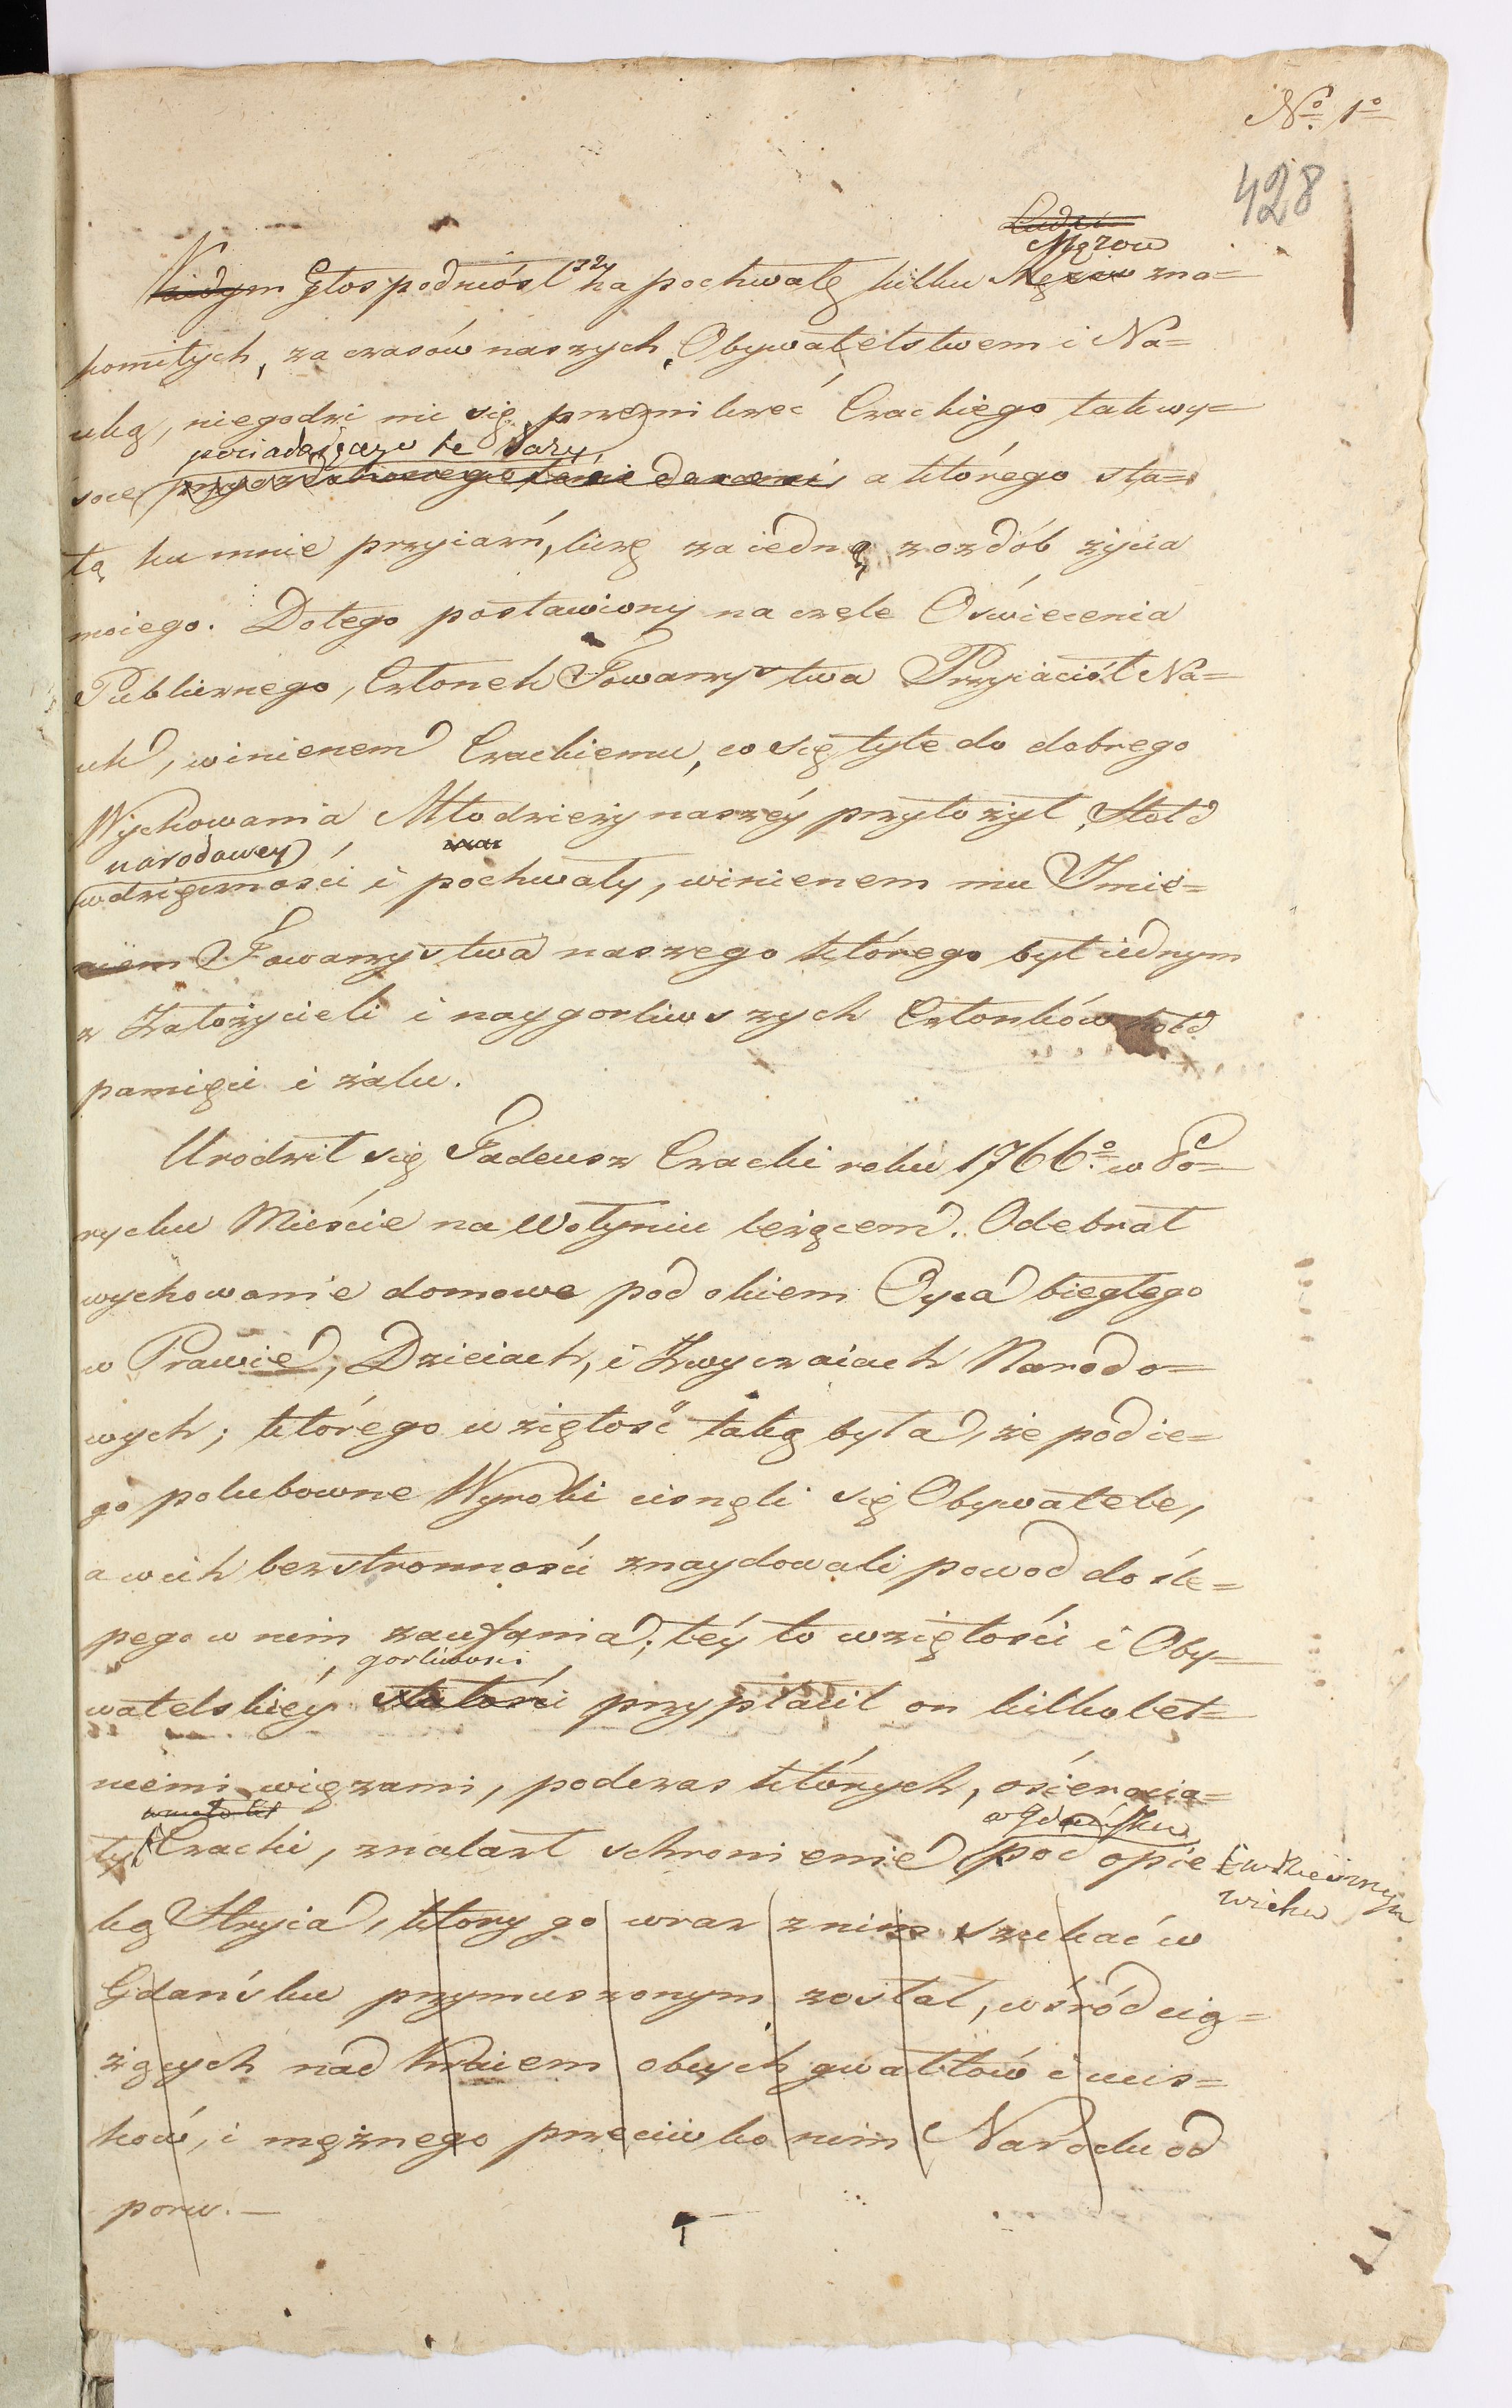 No. 1o
428
Ludzi
Mężow
Głos podniósł na pochwałę kilku Mężow zna=
komitych, za czasów naszych, Obywatelstwem i Na=
uką, niegodzi mi się przemilczeć Czackiego tak wy=
posiadaiącego te dary,
soce przyozdobionego temi darami, a którego sta=
łą ku mnie przyiaźń, liczę za iedną z ozdób życia
moiego. Do tego postawiony na czele Oświecenia
Publicznego, Członek Towarzystwa Przyiaciół Na=
uk, winienem Czackiemu, co się tyle do dobrego
Wychowania Młodzieży naszéy przyłożył, Hołd
narodowey
wdzięczności i pochwały, winienem mu Imie=
niem Towarzystwa naszego którego był iednym
z Założycieli i naygorliwszych Członków hołd
pamięci i żalu.
Urodził się Tadeusz Czacki roku 1766o. w Po=
rycku Mieście na Wołyniu leżącem. Odebrał
wychowanie domowe pod okiem Oyca biegłego
w Prawie, Dzieiach, i Zwyczaiach Narodo=
wych; którego wziętość taką była, że pod ie=
go polubowne Wyroki cisnęli się Obywatele,
a w ich bezstronności znaydowali powod do śle=
pego w nim zaufania; téy to wziętości i Oby=
gorliwości
watelskiéy stałości przypłacił on kilkolet=
niemi więzami, podczas których, osierocia=
w Gdańsku
ły Czacki, znalazł schronienie pod opie
w dziecinnym
wieku
ką Stryia, ktory go wraz z nim szukać w
Gdańsku przymuszonym został, wśród cią=
żących nad Kraiem obcych gwałtów i ucis=
ków, i mężnego przeciwko nim Narodu od
poru. —